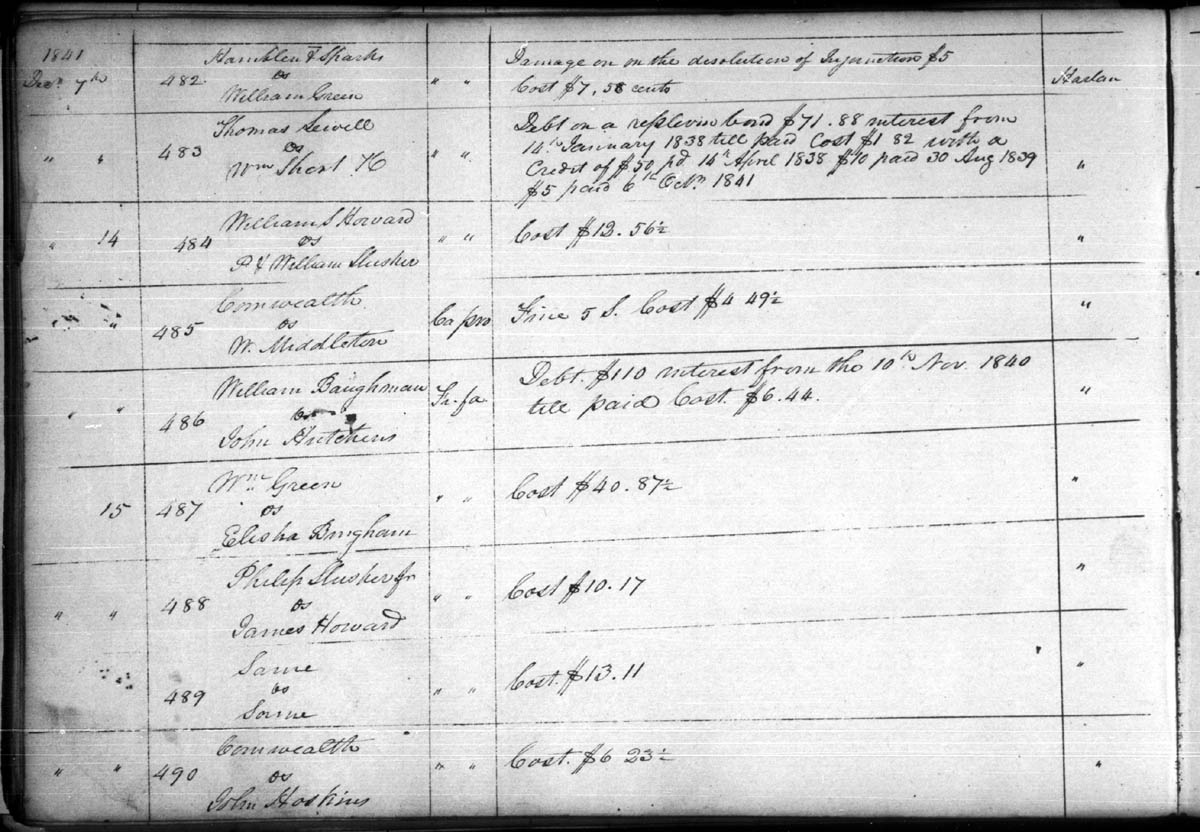 1841
Decr. 7th 482 Hamblen & Sparks vs William Green " " Damage on on the desolution of Injunction $5
Cost $7,58 cents Harlan
" " 483 Thomas Sewell vs Wm Short &C " " Debt on a replevin bond $71.88 interest from
14th January 1838 till paid Cost $1 82 with a
Credit of $50 pd 14th April 1838 $10 paid 30 Aug 1839 "
$5 paid 6th Octr. 1841
" 14 484 William S Howard vs P & William Slusher " " Cost $12.56½ "
" 485 Comwealth vs W. Middleton Ca pro Fine 5 S. Cost $4 49½ "
" " 486 William Baughman vs John Hutchens Fi.fa Debt. $110 interest from the 10th Nov. 1840
till paid Cost. $6.44. "
15 487 Wm Green vs Elisha Bingham " " Cost $40.87½ "
" " 488 Philip Slusher Jr vs James Howard " " Cost $10.17 "
" " 489 Same vs Same " " Cost. $13.11 "
" " 490 Comwealth vs John Hoskins " " Cost. $6 23½ "